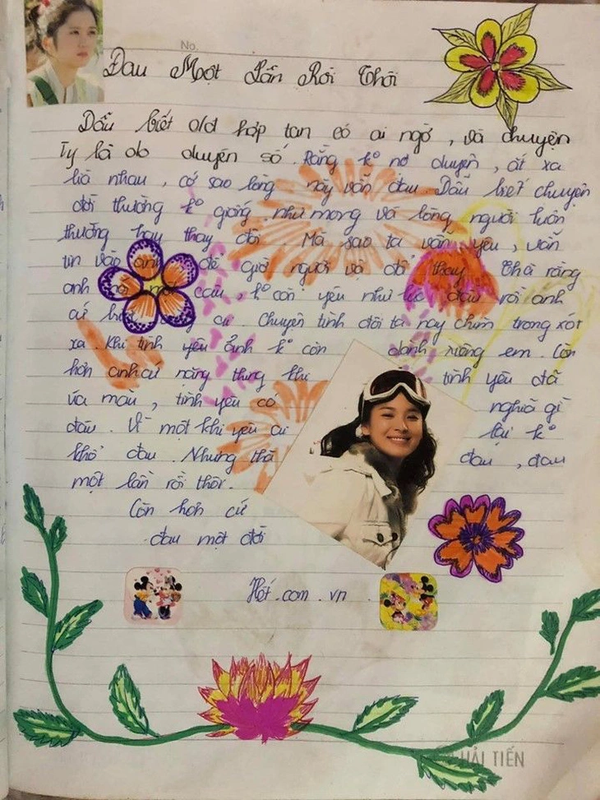 No.
Đau Một Lần Rồi Thôi
Dẫu biết old hợp tan có ai ngờ, và chuyện
ty là do duyên số. Rằng k° nợ duyên, ắt xa
lìa nhau, cớ sao lòng này vẫn đau. Dẫu biết chuyện
đời thường k° giống như mong và lòng người luôn
thường hay thay đổi. Mà sao ta vẫn yêu, vẫn
tin vào anh để giờ người vội đổi thay. Thà rằng
anh nói một câu, k° còn yêu như lúc đầu rồi anh
cứ cứ. Chuyện tình đôi ta nay chìm trong xót
xa. Khi tình yêu ảnh k° còn dành riêng em. Còn
hơn anh cứ nặng thing khi tình yêu đã
úa màu, tình yêu có nghĩa gì
đâu. Vì một khi yêu ai lại k°
khổ đau. Nhưng thà đau, đau
một lần rồi thôi.
Còn hơn cứ
đau một đời
Hết.com.vn
HẢI TIẾN